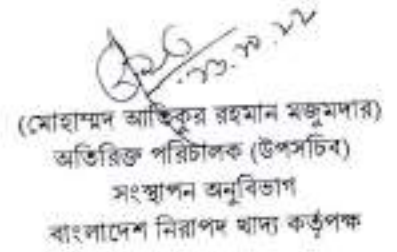 (মোহাম্মদ আতিকুর রহমান মজুমদার)
অতিরিক্ত পরিচালক (উপসচিব)
সংস্থাপন অনুবিভাগ
বাংলাদেশ নিরাপদ খাদ্য কর্তৃপক্ষ